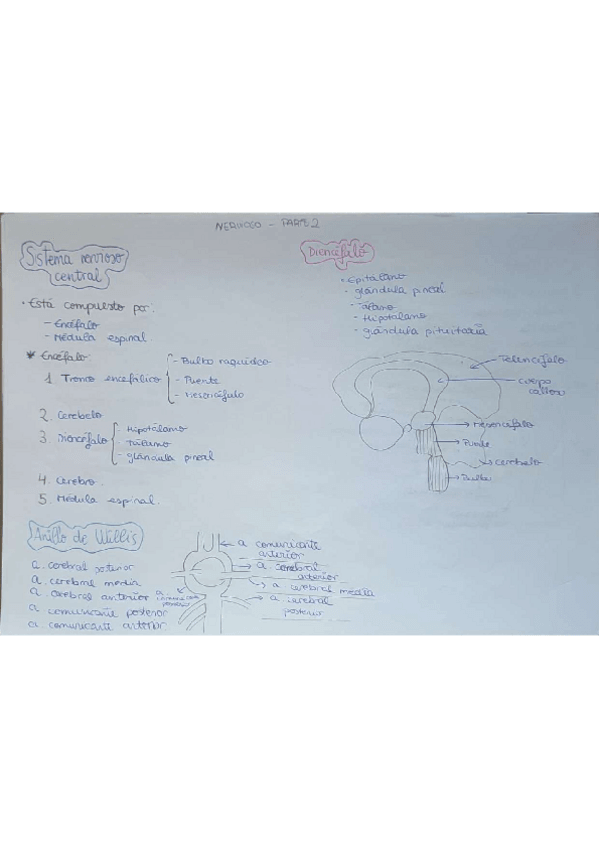 NERVIOSO - PARTE 2
Sistema nervioso
central
• Está compuesto por:
- Encéfalo
- Médula espinal.
* Encéfalo:
1. Tronco encefálico
- Bulbo raquídeo
- Puente
- Mesencéfalo
2. Cerebelo
3. Diencéfalo
- Hipotálamo
- Tálamo
- glándula pineal
4. Cerebro.
5. Médula espinal.
Diencéfalo
• Epitálamo
• glándula pineal
- Tálamo
- Hipotálamo
- glándula pituitaria
Telencéfalo
cuerpo
calloso
Mesencéfalo
Puente
cerebelo
Bulbo
Anillo de Willis
a. cerebral posterior
a. cerebral media
a. cerebral anterior
a. comunicante posterior
a. comunicante anterior
a. comunicante
anterior
a. cerebral
anterior
a. cerebral media
a. cerebral
posterior
a.
comunicante
posterior